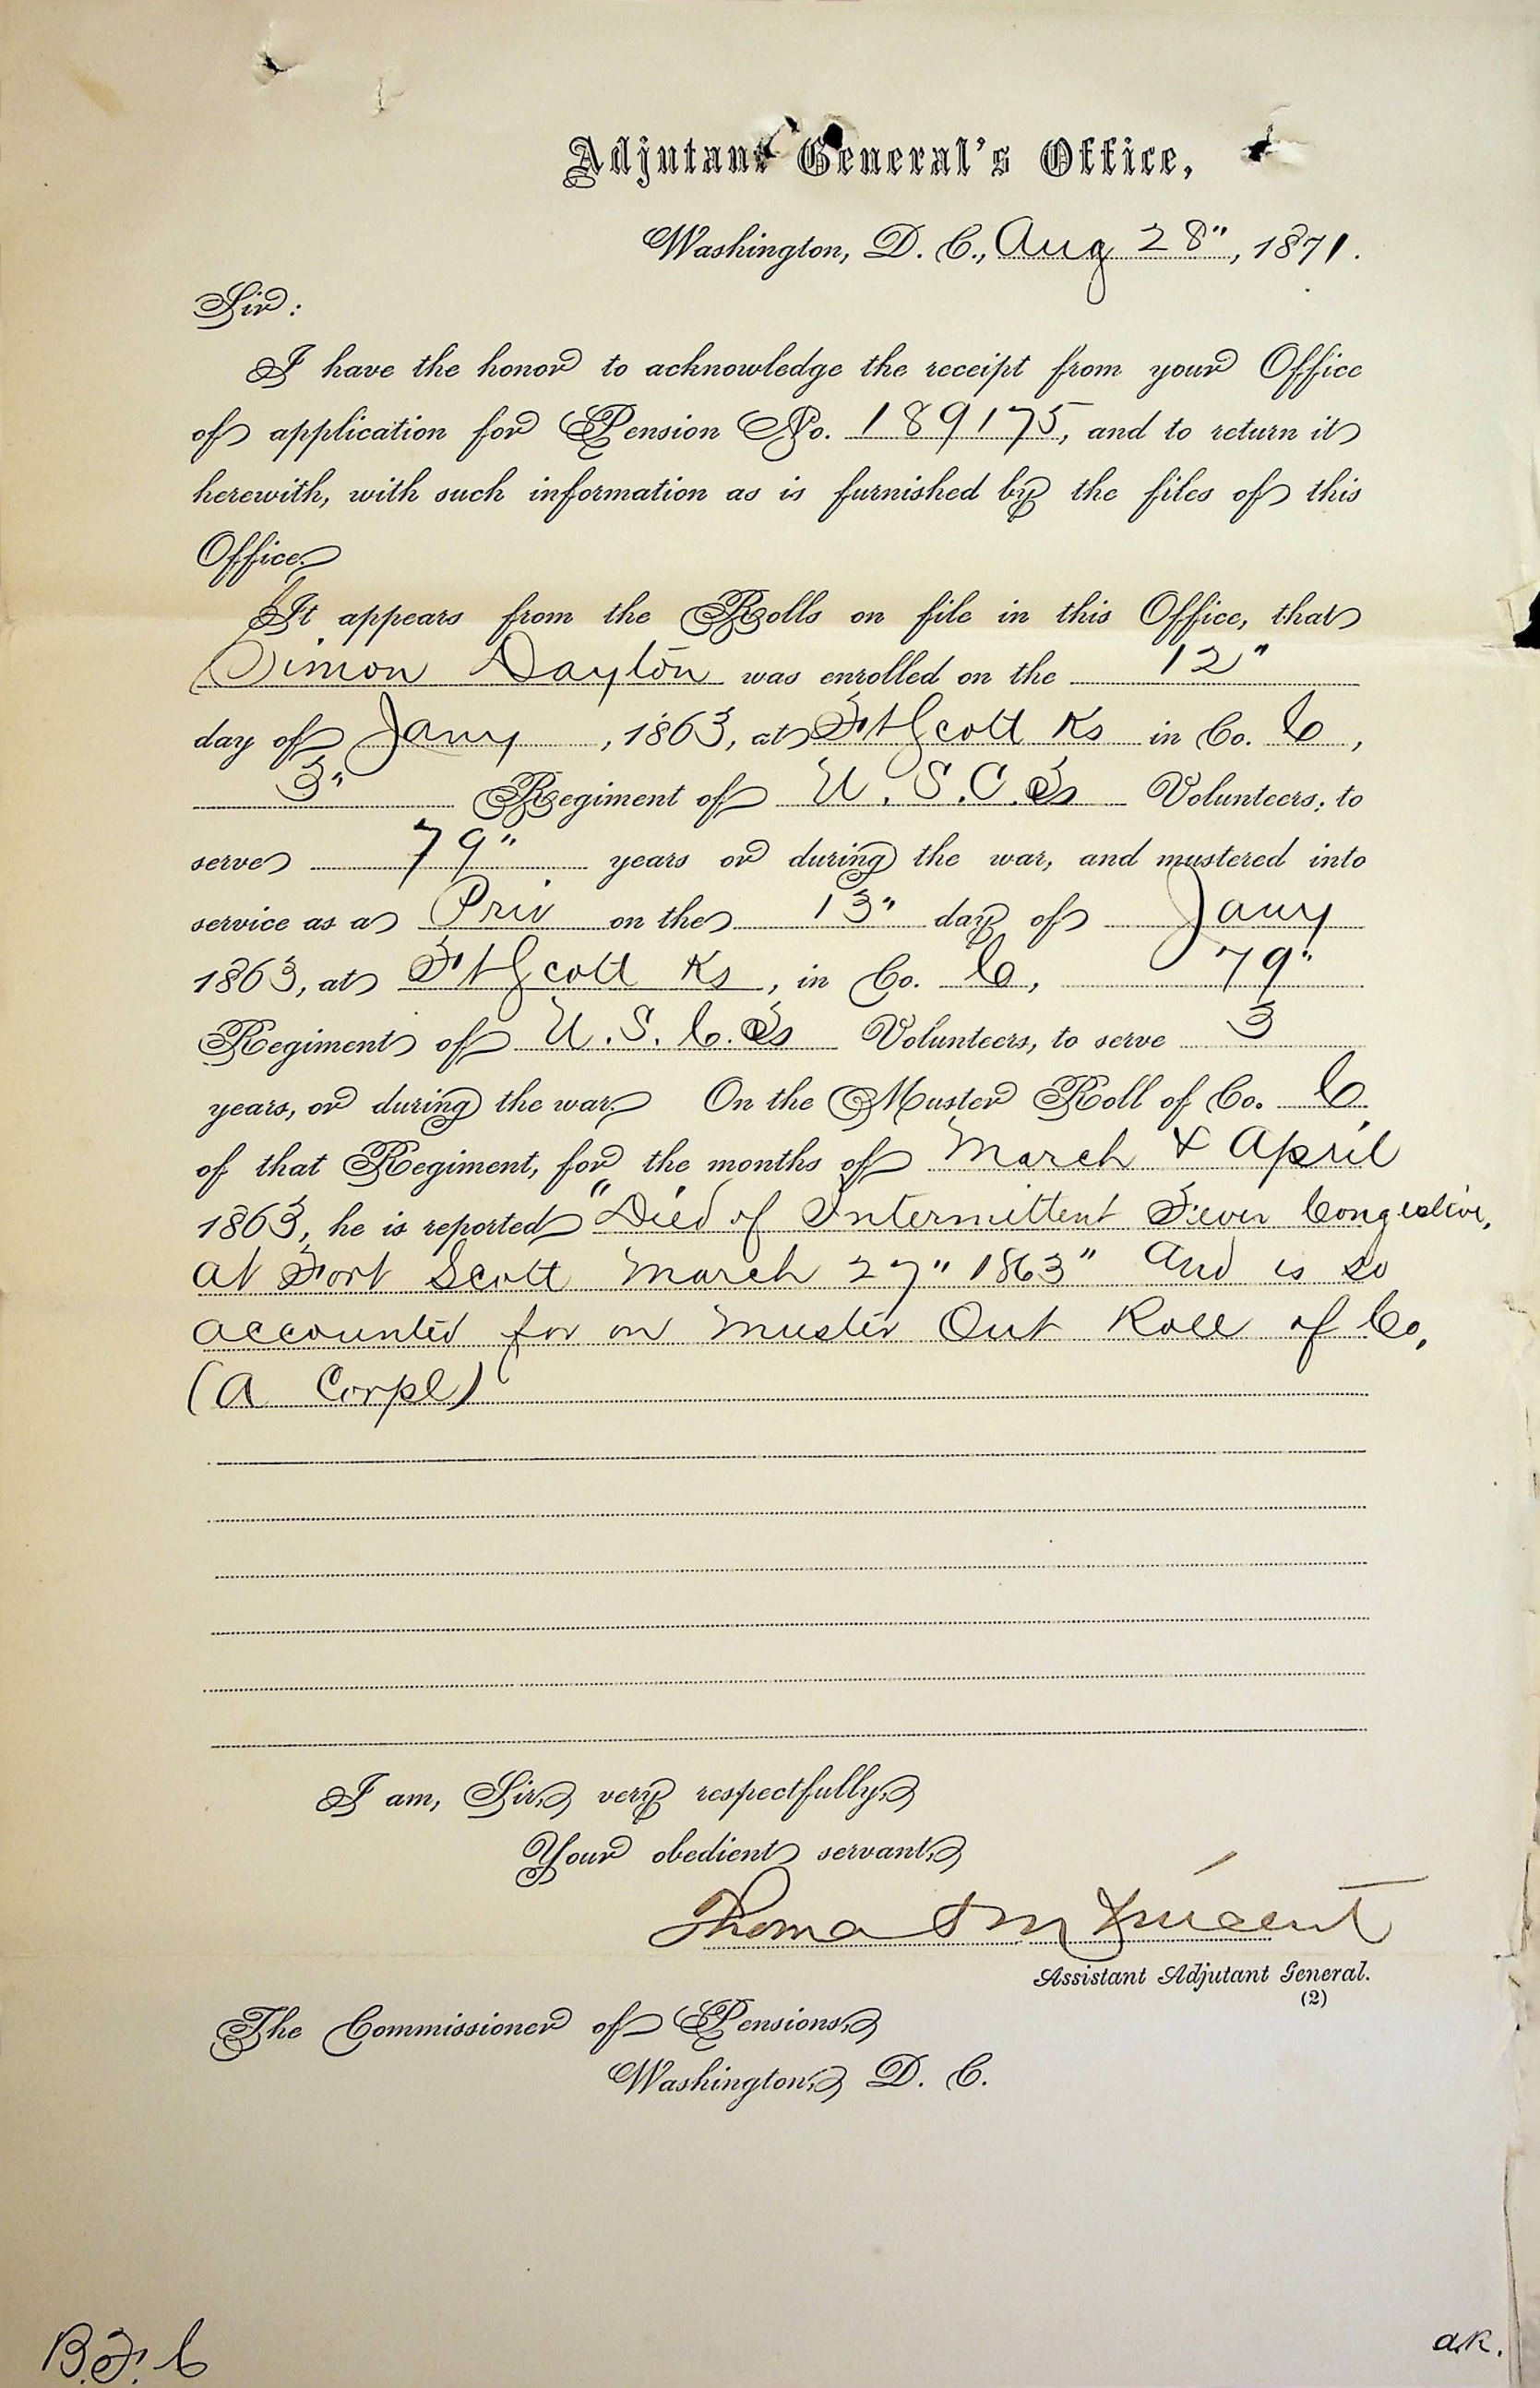 Adjutant General's Office,
Washington, D. C., Aug 28", 1871.
Sir:
I have the honor to acknowledge the receipt from your Office
of application for Pension No. 189175, and to return it
herewith, with such information as is furnished by the files of this
Office.
It appears from the Rolls on file in this Office, that
Simon Dayton was enrolled on the 12"
day of Jany, 1863, at Ft Scott Ks in Co. C,
3" Regiment of U.S.C.Ts Volunteers, to
serve 79" years or during the war, and mustered into
service as a Priv on the 13" day of Jany
1863, at Ft Scott Ks, in Co. C, 79"
Regiment of U.S.C.Ts Volunteers, to serve 3
years, or during the war. On the Muster Roll of Co. C
of that Regiment, for the months of March & April
1863, he is reported "Died of Intermittent Fever Congestive,
at Fort Scott March 27" 1863" and is so
accounted for on Muster Out Roll of Co.
(a Corpl)
I am, Sir, very respectfully,
Your obedient servant,
Thomas M Vincent
Assistant Adjutant General.
(2)
The Commissioner of Pensions,
Washington, D. C.
B.F.C
a.k.